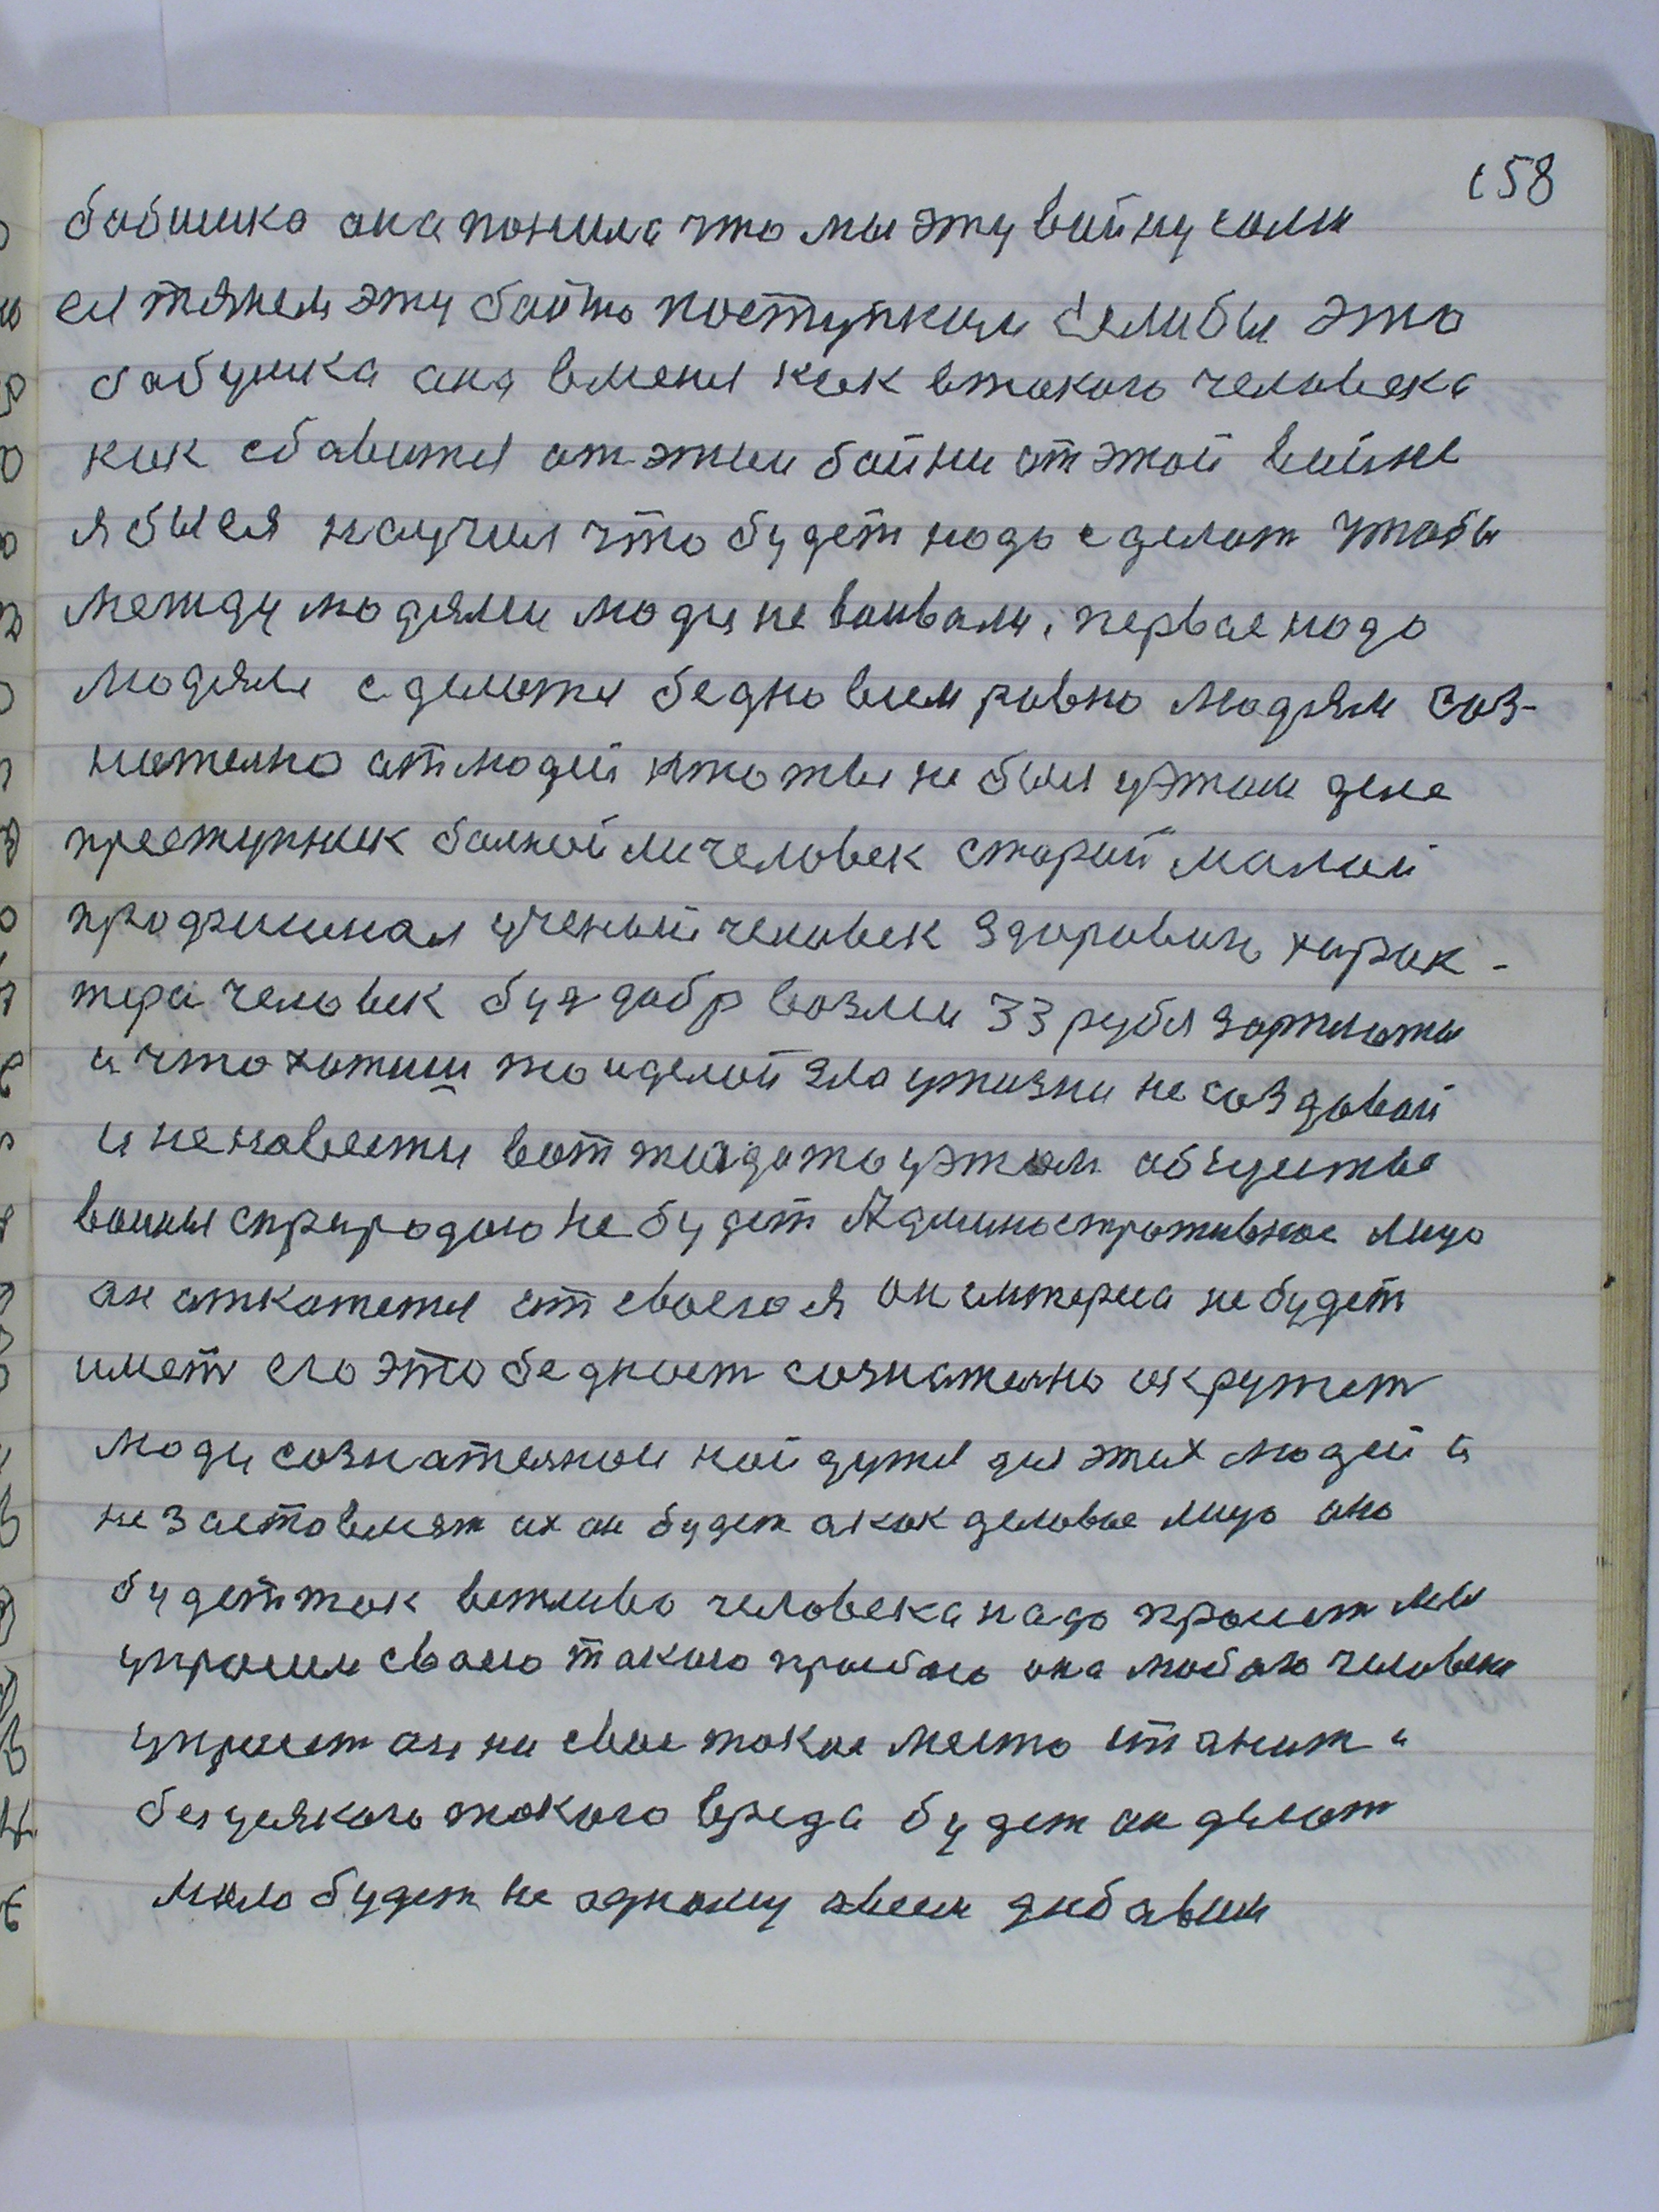 158
бабшка ана понила что мы эту вайну сами
ея тянем эту байню поступкам если бы это
бабушка ана вменя как втакого человека
как сбавится от этии байни от этой вайне
я бы ея научил что будет надо сделат чтобы
между людями люди не воивали, первае надо
людям сделатся бедно всем равно людям саз-
нателно от людей ктоты не был уэтом деле
преступник балной личеловек старай малай
прадзшинал ученый человек здоровиго харак-
тера человек будь добр возми 33 рубля зарплаты
и что хотиш то и делай зла ужизни не саздавай
и ненависти вот тигдато уэтом абчудистве
воины с природою не будет Административное лицо
ан откажется от своего я ан интереса не будет
имет его это беднаст сознателно окружет
люди сознателнои найдутся для этих людей и
не заставлят их он будет а как деловое лицо ано
будет так вежливо человека надо просит мы
упросим своего такого прозбаю ана любого человека
упросит ан на свае такое место станит и
безусякого такого вреда будет ан делат
мало будет не адному авсем дибавим